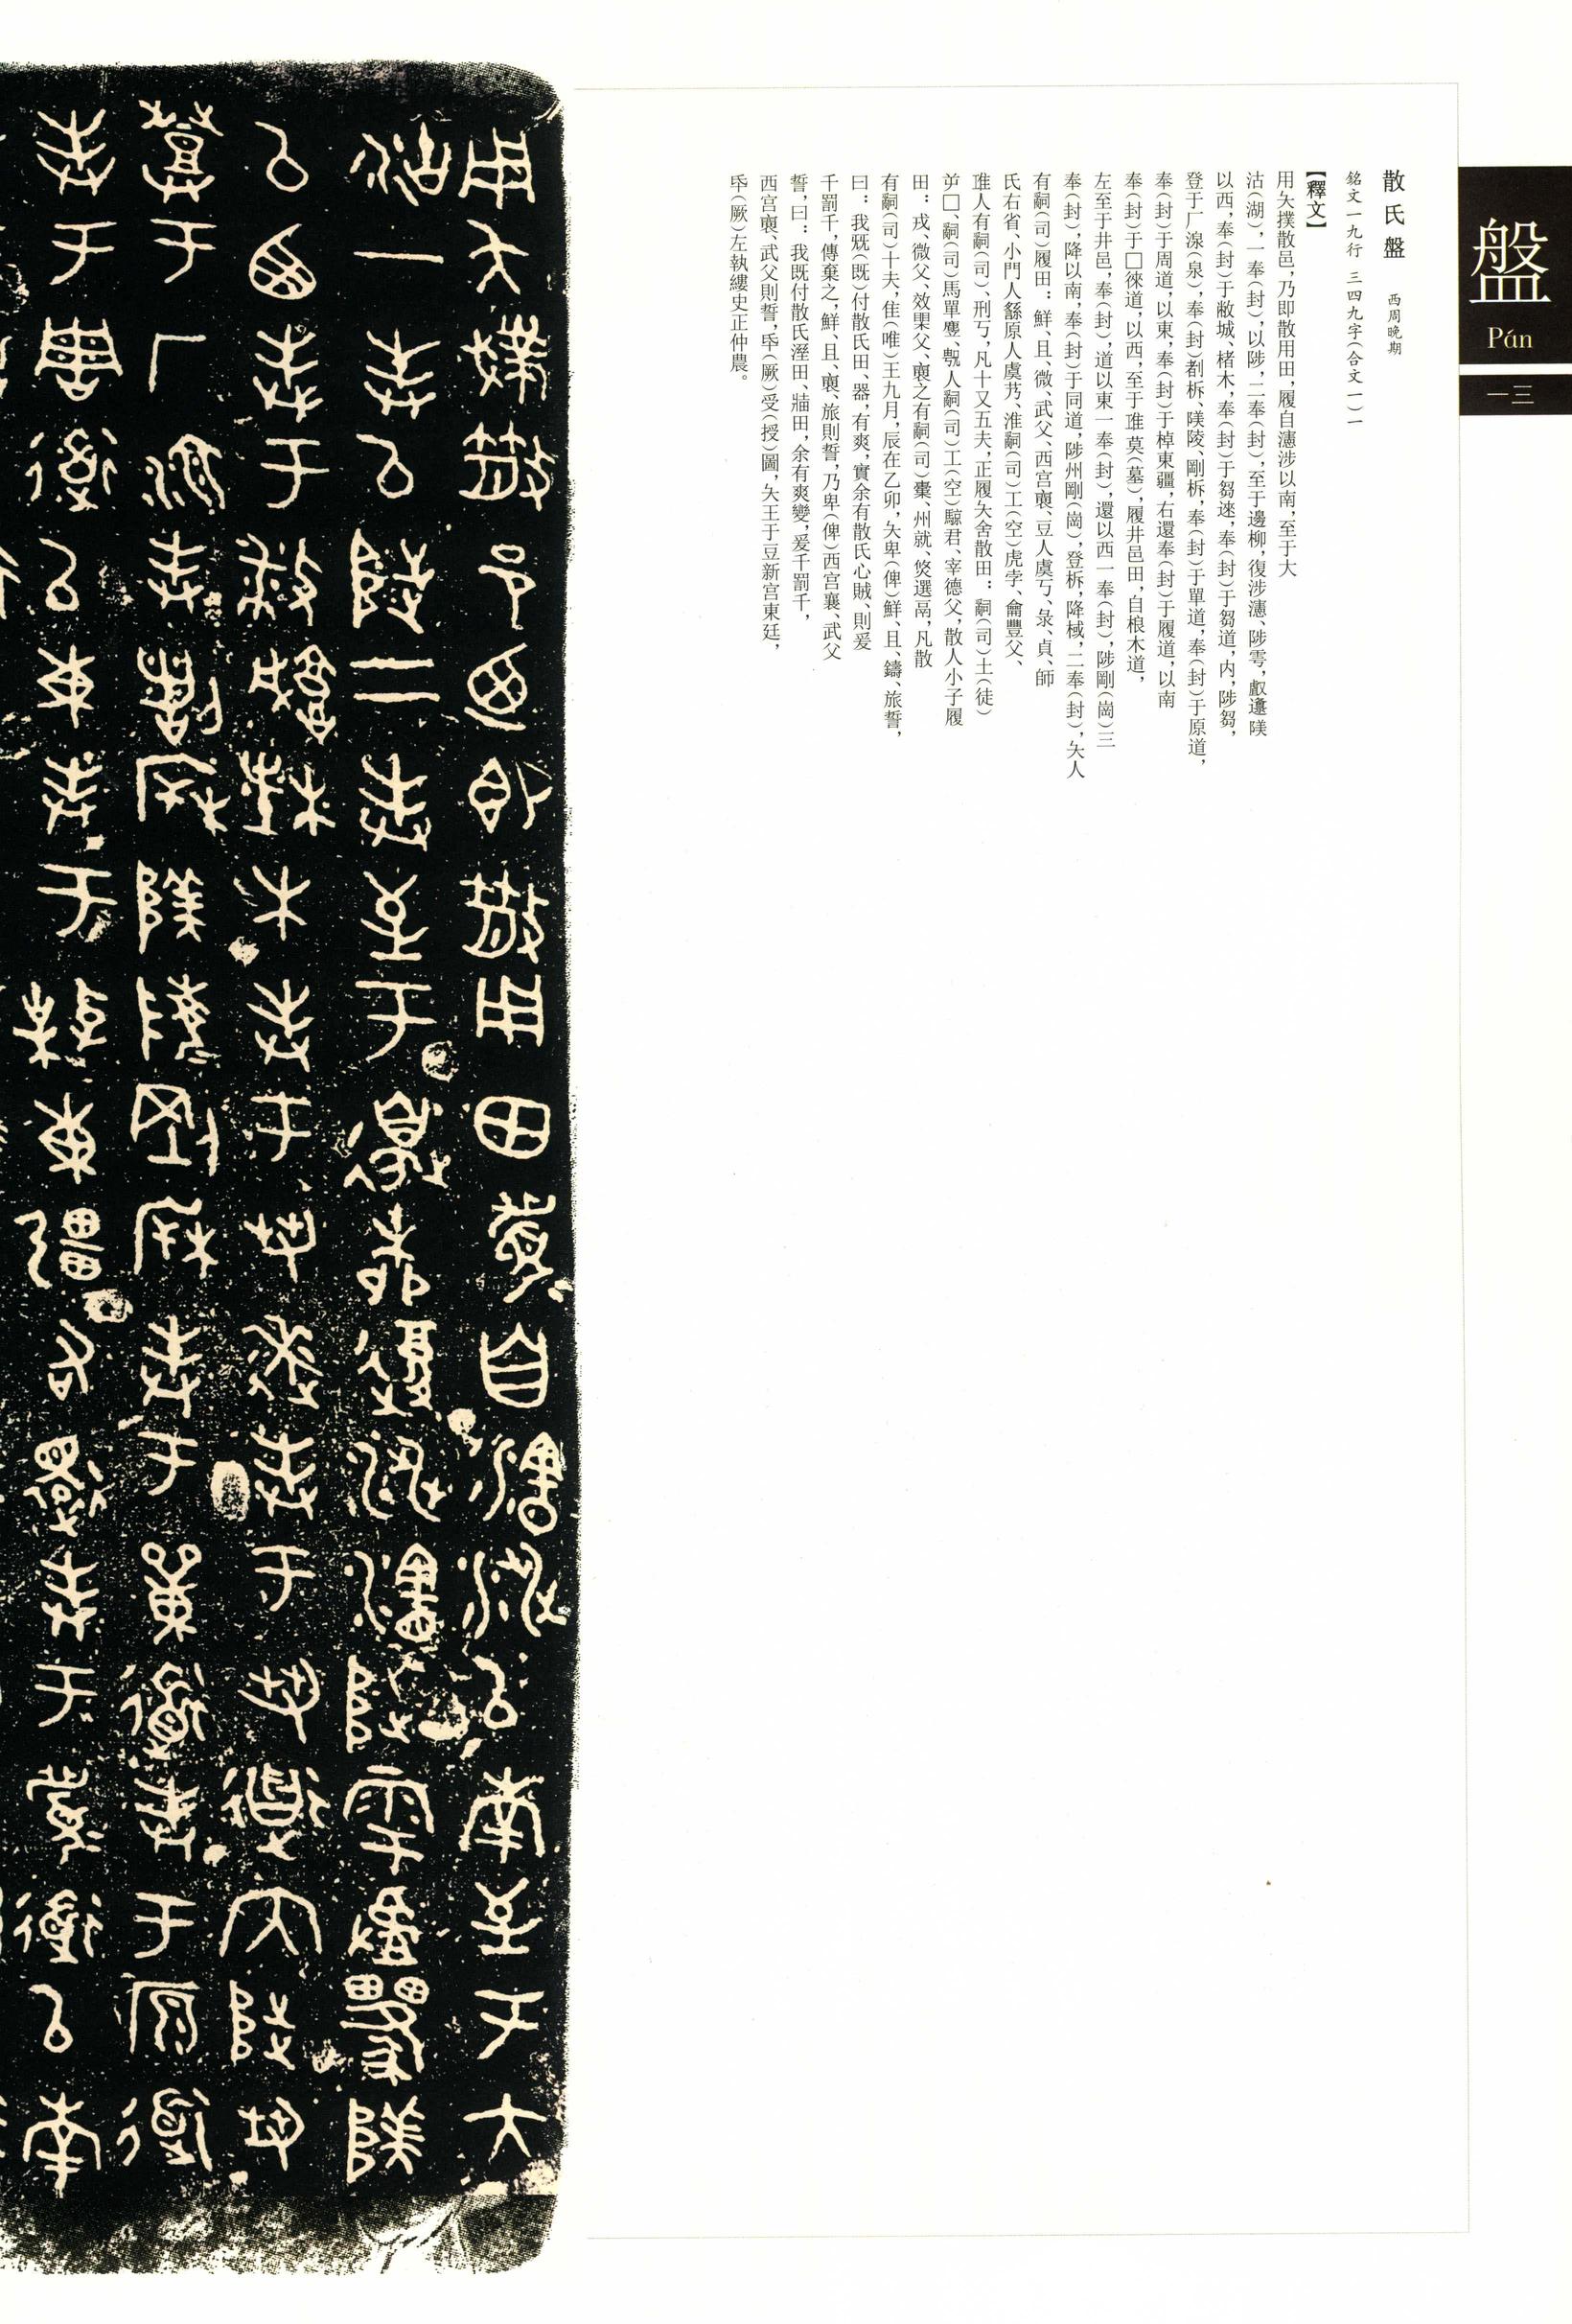 盤
Pán
一三
散氏盤 西周晚期
銘文一九行 三四九字(合文一)一
【釋文】
用夨撲散邑,乃即散用田,履自瀗涉以南,至于大
沽(湖),一奉(封),以陟,二奉(封),至于邊柳,復涉瀗、陟雩,䖒𨖍𨻰
以西,奉(封)于敝城、楮木,奉(封)于芻逨,奉(封)于芻道,内,陟芻,
登于厂湶(泉),奉(封)㓸杮、𨻰陵、剛杮,奉(封)于單道,奉(封)于原道,
奉(封)于周道,以東,奉(封)于棹東疆,右還奉(封)于履道,以南
奉(封)于□徠道,以西,至于琟莫(墓),履井邑田,自桹木道,
左至于井邑,奉(封),道以東一奉(封),還以西一奉(封),陟剛(崗)三
奉(封),降以南,奉(封)于同道,陟州剛(崗),登杮,降棫,二奉(封),夨人
有嗣(司)履田:鮮、且、微、武父、西宫襄、豆人虞丂、彔、貞、師
氏右省、小門人繇原人虞艿、淮嗣(司)工(空)虎孛、龠豐父、
琟人有嗣(司)、刑丂,凡十又五夫,正履夨舍散田:嗣(司)土(徒)
□、嗣(司)馬單𢊁、人嗣(司)工(空)駼君、宰德父,散人小子履
田:戎、微父、效𣐺父、襄之有嗣(司)橐、州就、悠選鬲,凡散
有嗣(司)十夫,隹(唯)王九月,辰在乙卯,夨卑(俾)鮮、且、鑄、旅誓,
曰:我兓(既)付散氏田、器,有爽,實余有散氏心賊、則爰
千罰千,傳棄之,鮮、且、襄、旅則誓,乃卑(俾)西宫襄、武父
誓,曰:我既付散氏溼田、牆田,余有爽變,爰千罰千,
西宫襄、武父則誓,氒(厥)受(授)圖,夨王于豆新宫東廷,
氒(厥)左執縷史正仲農。